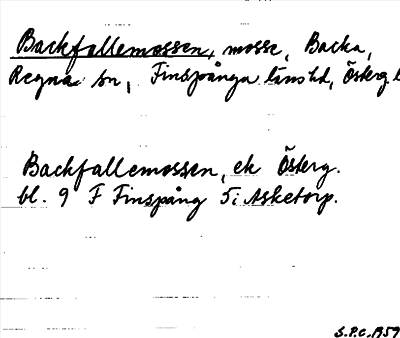 Backfallemossen, mosse, Backa,
Regna sn, Finspånga länshd, Österg.
Backfallemossen, ek Österg.
bl. 9 F Finspång 5i Asketorp.
S.P.C. 1959